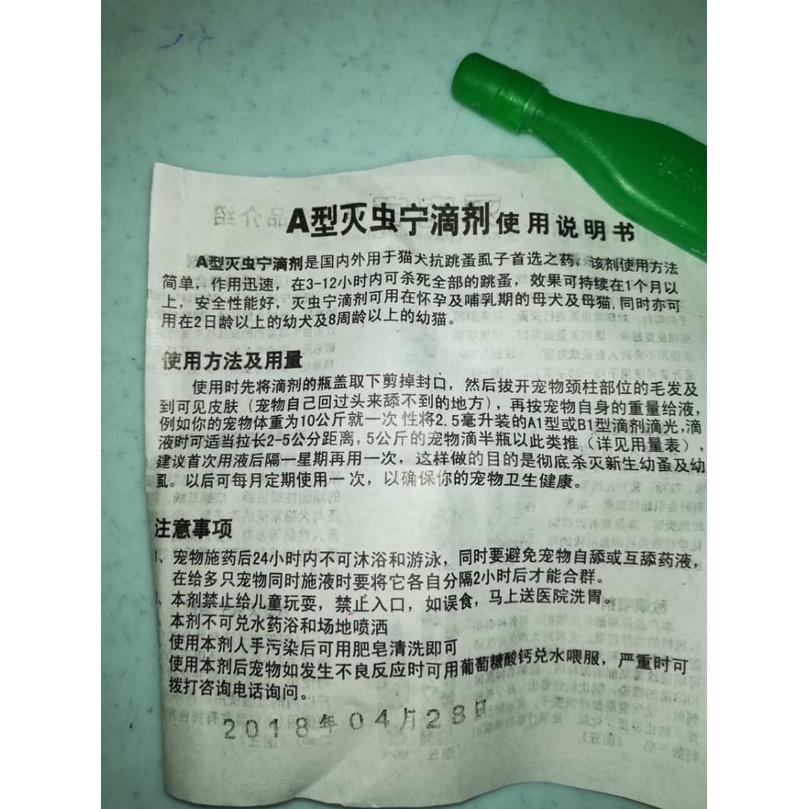 A型灭虫宁滴剂使用说明书
A型灭虫宁滴剂是国内外用于猫犬抗跳蚤虱子首选之药，该剂使用方法
简单，作用迅速，在3-12小时内可杀死全部的跳蚤，效果可持续在1个月以
上，安全性能好，灭虫宁滴剂可用在怀孕及哺乳期的母犬及母猫，同时亦可
用在2日龄以上的幼犬及8周龄以上的幼猫。
使用方法及用量
使用时先将滴剂的瓶盖取下剪掉封口，然后拔开宠物颈柱部位的毛发及
到可见皮肤（宠物自己回过头来舔不到的地方），再按宠物自身的重量给液，
例如你的宠物体重为10公斤就一次 性将2.5毫升装的A1型或B1型滴剂滴光，滴
液时可适当拉长2-5公分距离，5公斤的宠物滴半瓶以此类推（详见用量表），
建议首次用液后隔一星期再用一次，这样做的目的是彻底杀灭新生幼蚤及幼
虱。以后可每月定期使用一次，以确保你的宠物卫生健康。
注意事项
1、宠物施药后24小时内不可沐浴和游泳，同时要避免宠物自舔或互舔药液，
在给多只宠物同时施液时要将它各自分隔2小时后才能合群。
、本剂禁止给儿童玩耍，禁止入口，如误食，马上送医院洗胃。
本剂不可兑水药浴和场地喷洒
使用本剂人手污染后可用肥皂清洗即可
使用本剂后宠物如发生不良反应时可用葡萄糖酸钙兑水喂服，严重时可
拨打咨询电话询问。
2018年04月28日